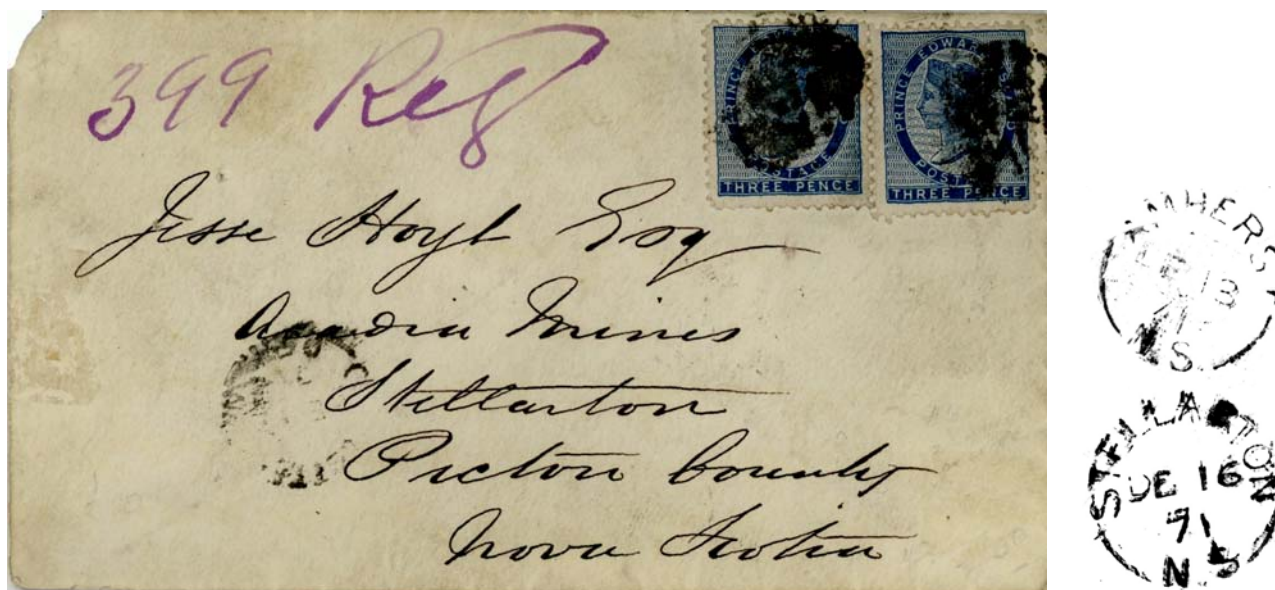 399 Reg
PRINCE EDWARD
POSTAGE
THREE PENCE
PRINCE EDWARD IS
POST
THREE PENCE
Jesse Hoyt Esq
Acadia Mines
Stellarton
Pictou County
Nova Scotia
AMHERST
13
71
N.S.
STELLARTON
DE 16
71
N.S